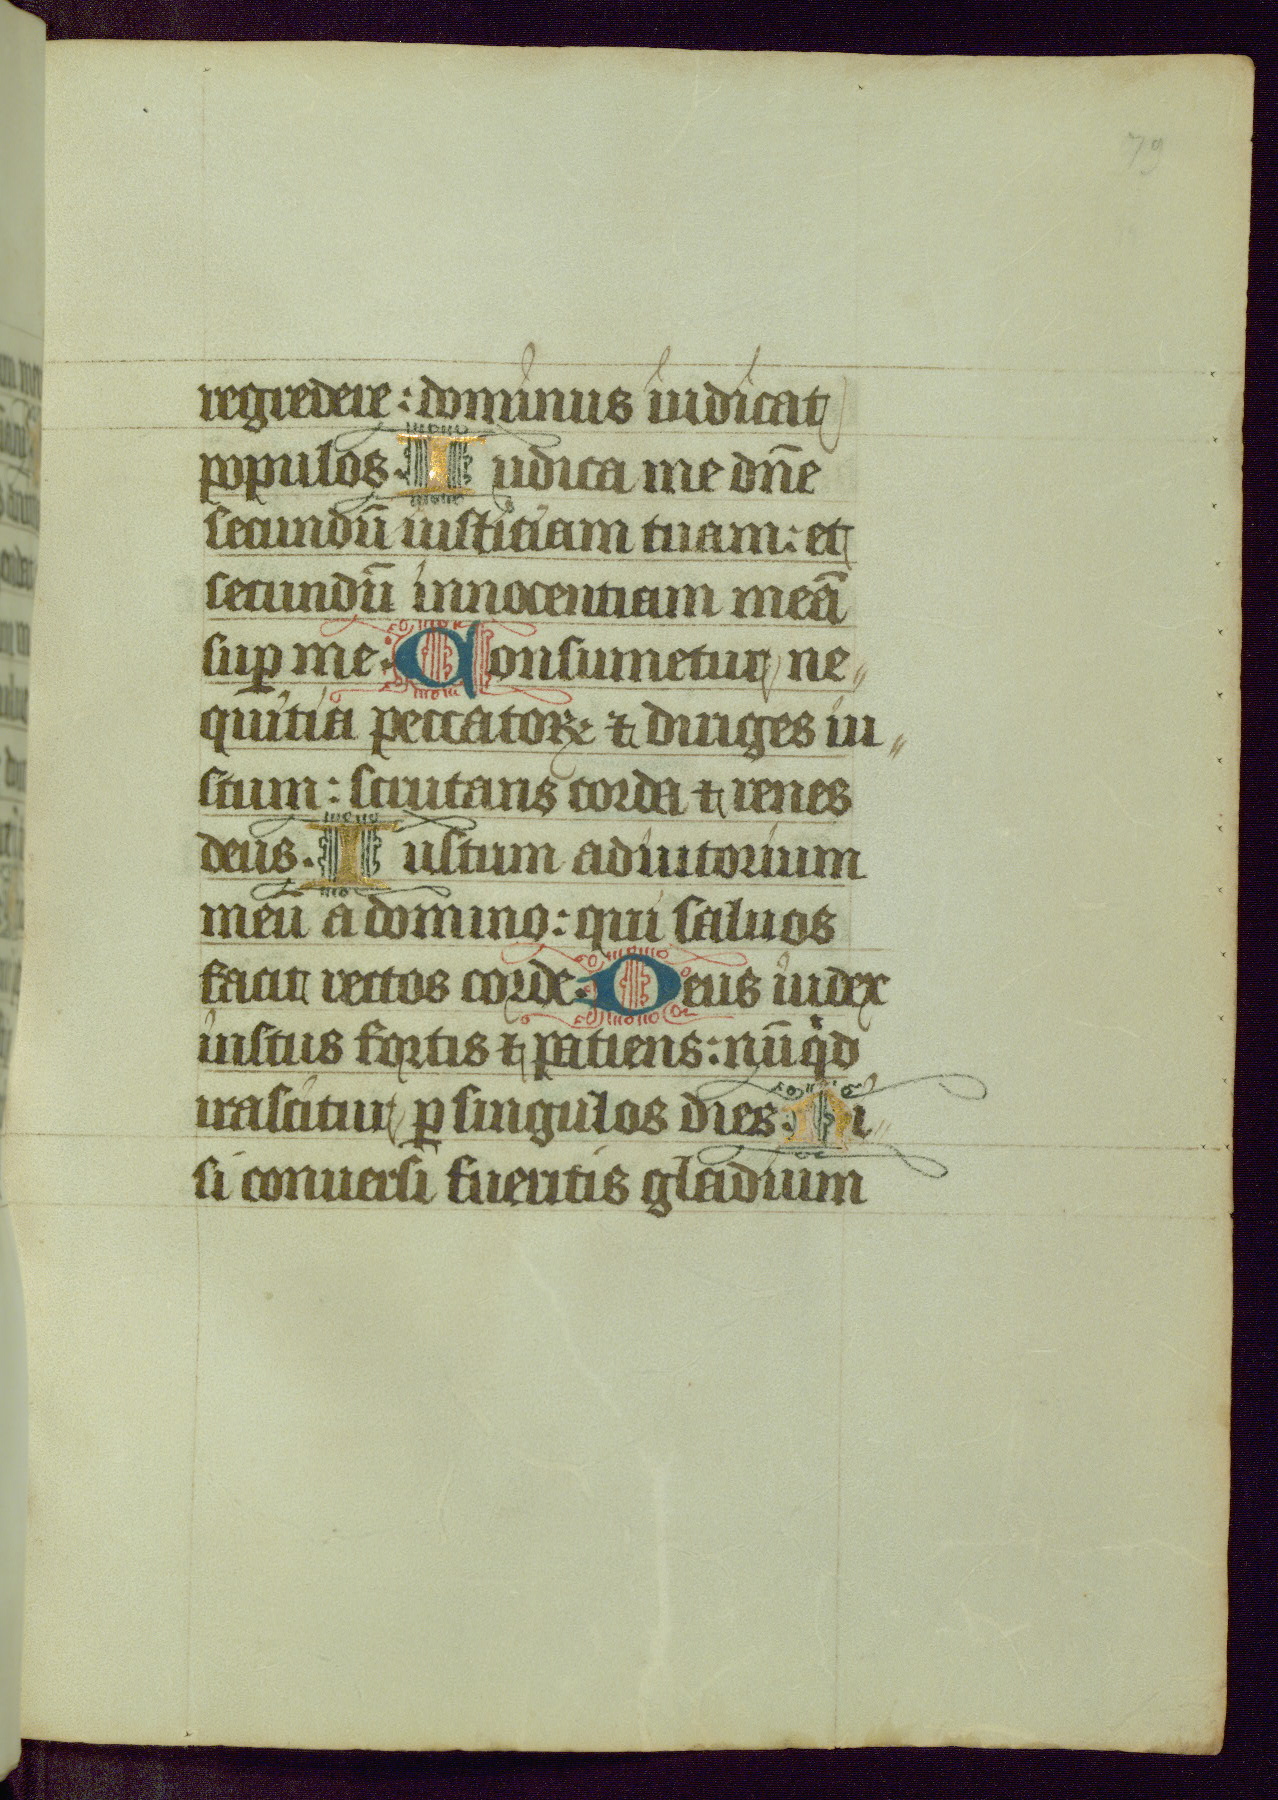 79
regredere: dominus iudicat
populos. Iudica me dn̄e
secundū iusticiam tuam: et
secundū innocentiam meā
suꝑ me. Consumetur ne〃
quitia peccatoꝝ: ⁊ diriges iu〃
stum: scrutans corda ⁊ renes
deus. Iustum adiutorium
meū a domino: qui saluos
facit rectos corde. Deus iudex
iustus fortis ⁊ patiens: nūqͥd
irascitur ꝑ singulos dies. Ni〃
si conuersi fueritis gladium